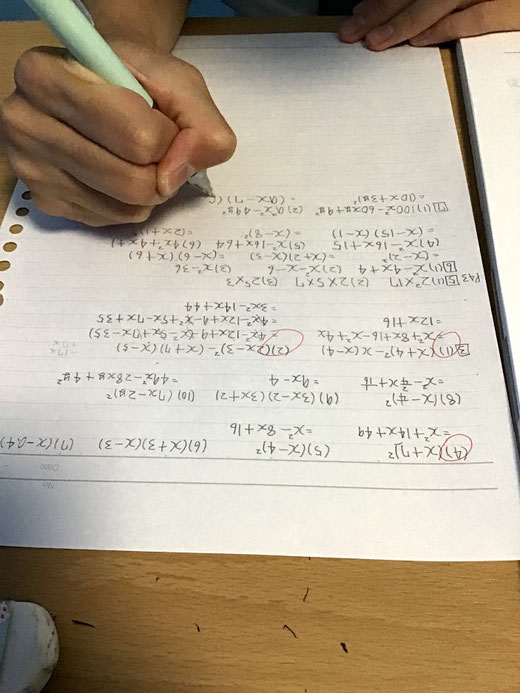 No.
Date
(4) (x+7)² (5) (x-4)² (6) (x+3)(x-3) (7) (x-0.4)
=x²+14x+49 =x²-8x+16
(8) (x- )² (9) (3x-2)(3x+2) (10) (7x-2y)²
=9x-4 =49x²-28xy+4y²
3 (1) (x+4)²-x(x-4) (2) (2x-3)²-(x+7)(x-5)
=x²+8x+16-x²+4x =4x²-12x+9-(x²-5x+7x-35)
12x+16 =4x²-12x+9-x²+5x-7x+35
=3x²-14x+44
P43 5 (1) 2²×17 (2) 2×5×7 (3) 2⁵×3
6 (1) x²-4x+4 (2) x²-x-6 (3) x²-36
=(x-2)² =(x+2)(x-3) =(x-6)(x+6)
(4) x²-16x+15 (5) x²-16x+64 (6) 4x²+4x+1
=(x-15)(x-1) =(x-8)²
7 (1) 100x²-60xy+9y² (2) 9x²-49y²
=(10x+3y)² =(9x-7)(